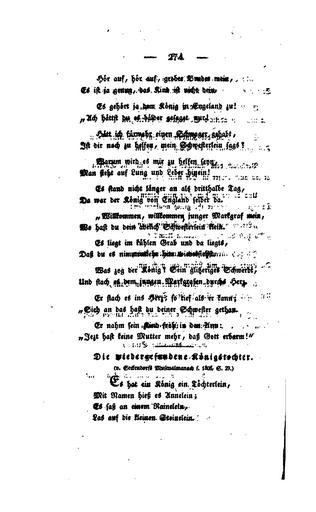 — 274 —
Hör auf, hör auf, großes Bruder mein,
Es ist ja genug, das Kind ist nicht dein.
Es gehört ja dem König in Engeland zu!
„Ach hättst du es bälder gesaget nur!
Hätt ich fürwahr einen Schwager gehabt,
Ist dir noch zu helfen, mein Schwesterlein sags?
Warum wird es mir zu helfen seyn,
Man sieht auf Lung und Leber hinein!
Es stand nicht länger an als dritthalbe Tag,
Da war der König von England selber da.
„Willkommen, willkommen junger Markgraf mein,
Wo hast du dein Schwesterlein klein.
Es liegt im kühlen Grab und da liegts,
Daß du es
Was zog der König? Sein glitzeriges Schwerdt,
Und stach es dem jungen Markgrafen durchs Herz.
Er stach es ins Herz, so tief als er kann;
„Sieh an das hast du deiner Schwester gethan.
Er nahm sein Kind in den Arm:
„Jezt hast keine Mutter mehr, daß Gott erbarm!“
Die wiedergefundene Königstochter.
(v. Seckendorfs Musenalmanach f. 1808. S. 29.)
Es hat ein König ein Töchterlein,
Mit Namen hieß es Annelein;
Es saß an einem Rainelein,
Las auf die kleinen Steinelein.